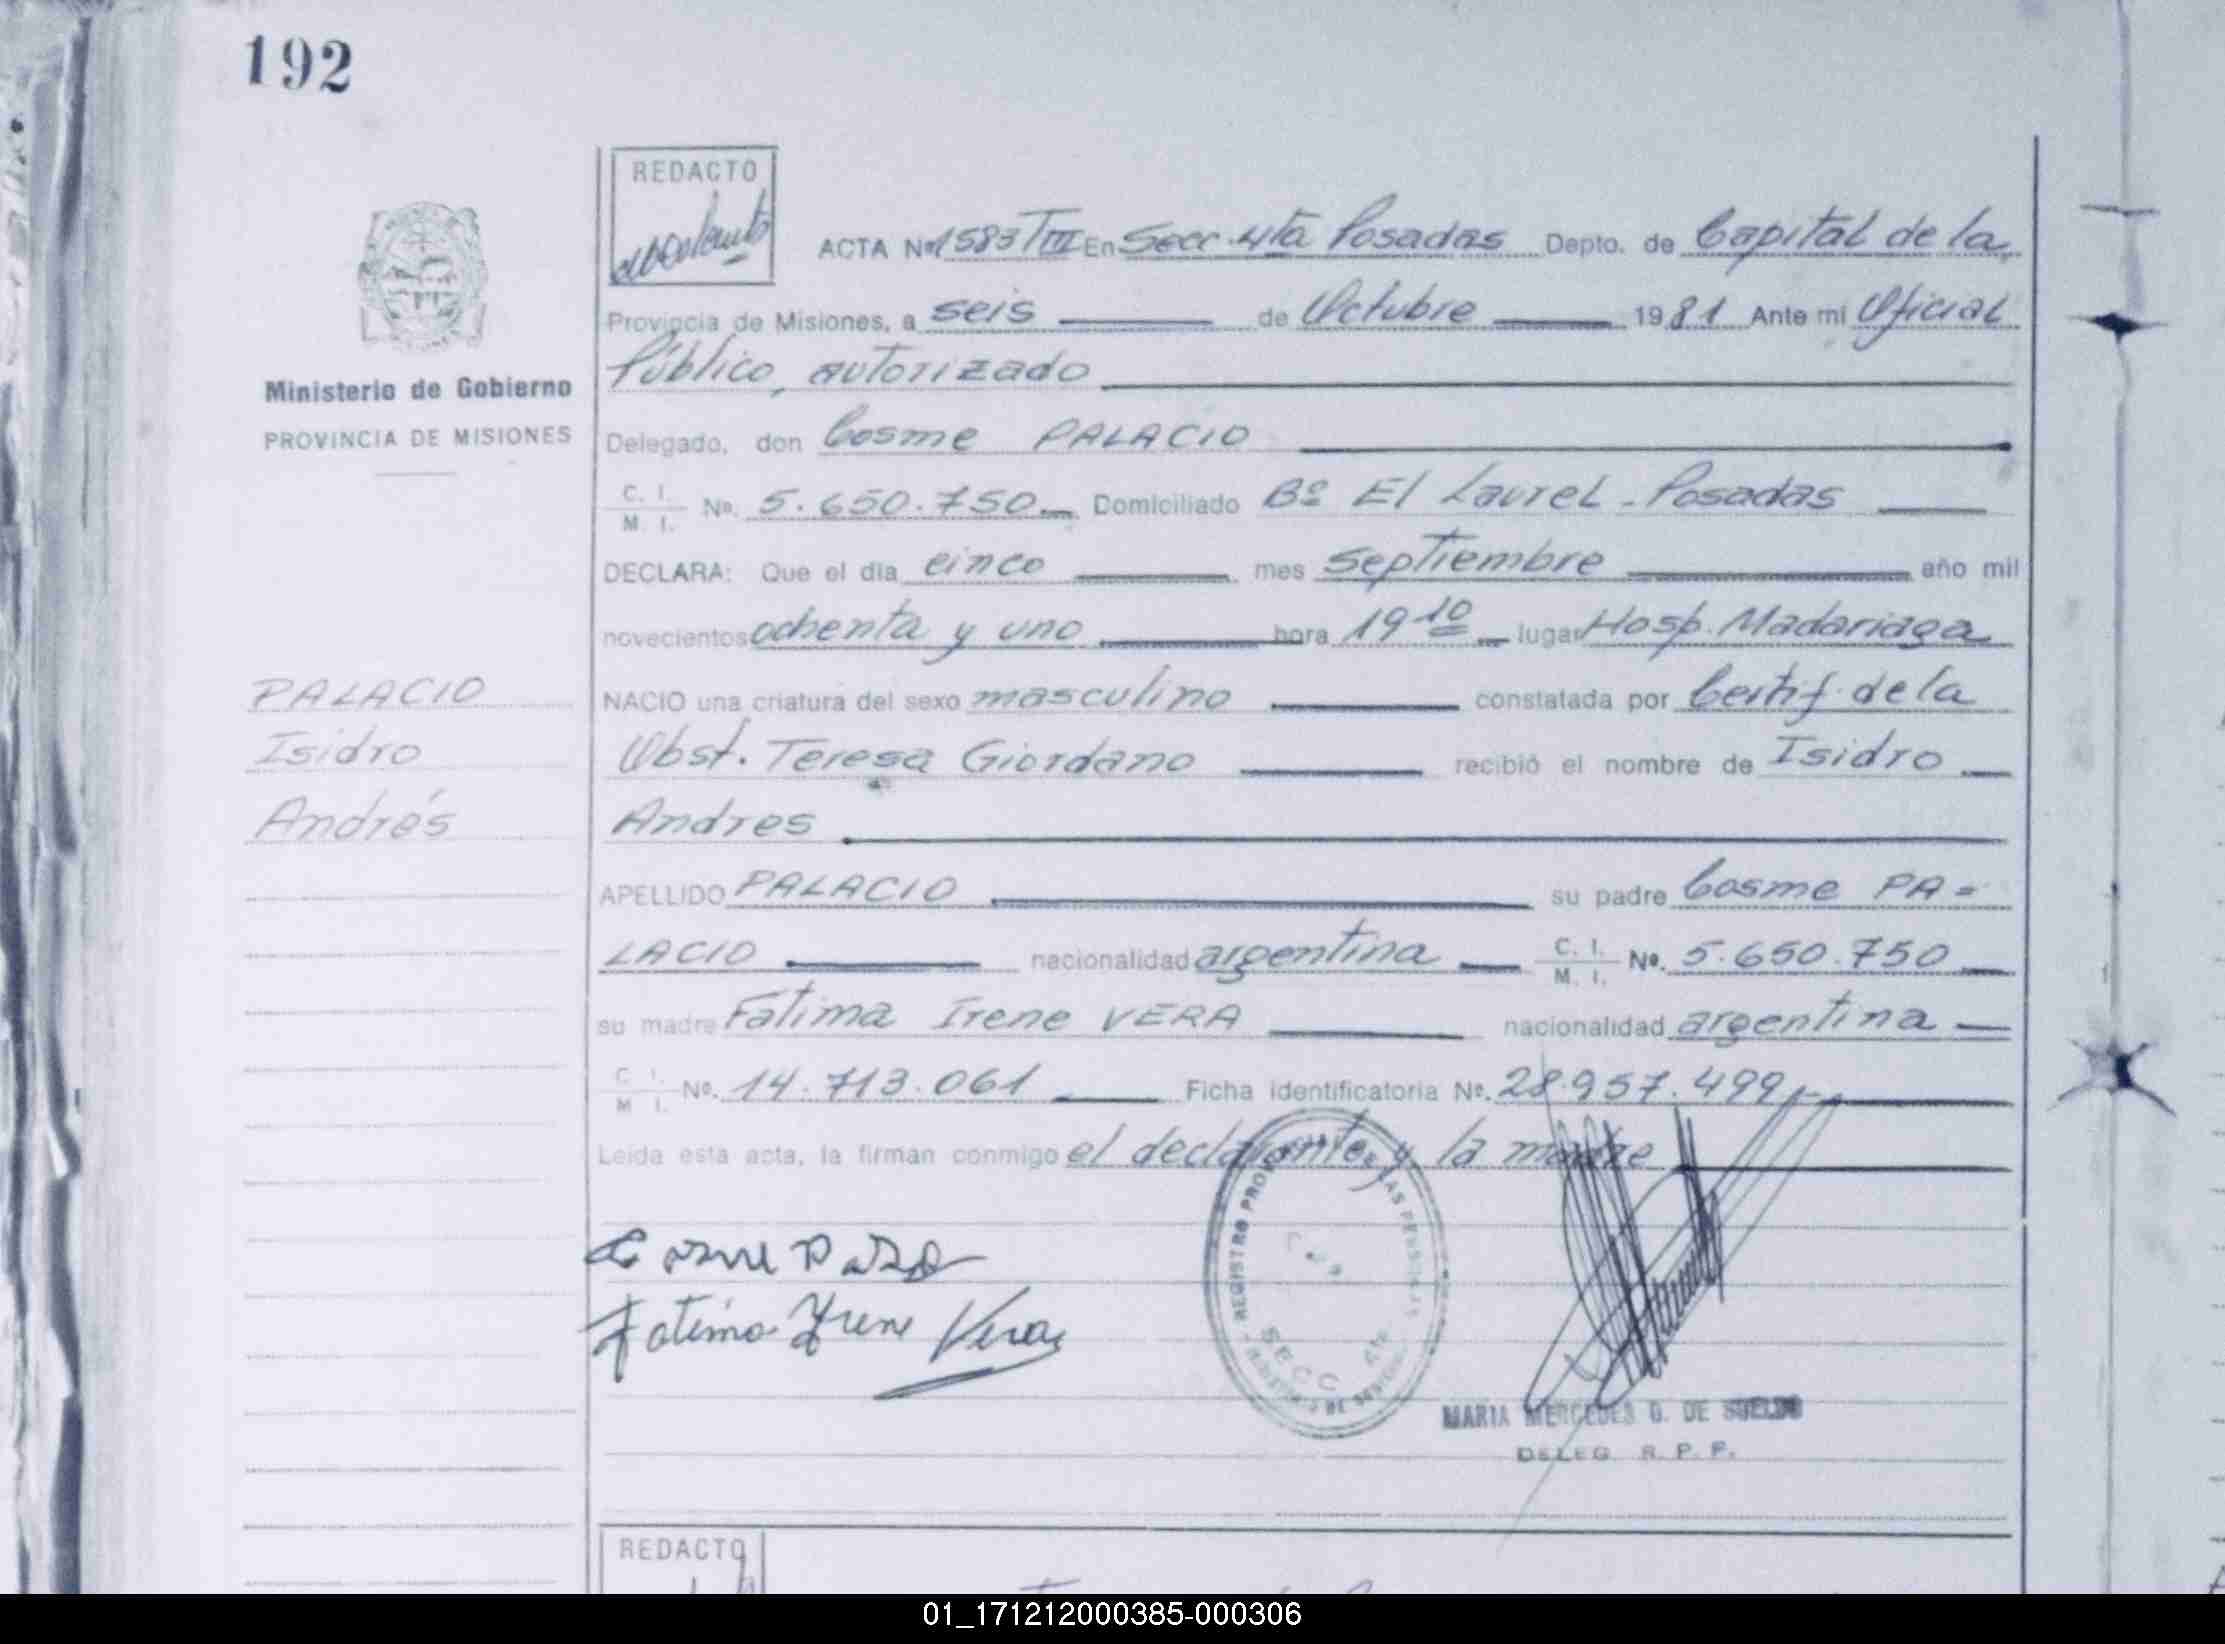 192
REDACTO
ACTA Nº 1583 TIII En Secc. 4ta Posadas Depto. de Capital de la
Provincia de Misiones, a seis de Octubre 1981 Ante mi Oficial
Público, autorizado
Ministerio de Gobierno
PROVINCIA DE MISIONES
Delegado, don Cosme PALACIO
C. I.
M. I. Nº. 5.650.750 Domiciliado Bº El Laurel - Posadas
DECLARA: Que el dia cinco mes septiembre año mil
novecientos ochenta y uno hora 19 10 lugar Hosp. Madariaga
PALACIO
Isidro
Andrés
NACIO una criatura del sexo masculino constatada por Certif. de la
Obst. Teresa Giordano recibió el nombre de Isidro
Andres
APELLIDO PALACIO su padre Cosme PA=
LACIO nacionalidad argentina C. I. M. I. Nº. 5.650.750
su madre Fatima Irene VERA nacionalidad argentina
C. I. M. I. Nº. 14.713.061 Ficha identificatoria Nº. 28.957.499
Leida esta acta, la firman conmigo el declarante y la madre
Cosme
Fatima Irene Vera
REGISTRO PROV DE LAS PERSONAS
SECC 4ta
MARIA MERCEDES G. DE SUELDO
DELEG. R. P. P.
REDACTO
01_171212000385-000306